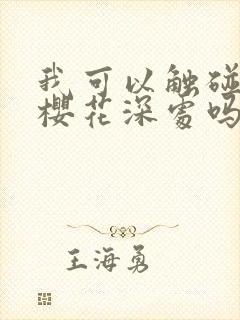 我可以触碰
樱花深处吗
王海勇